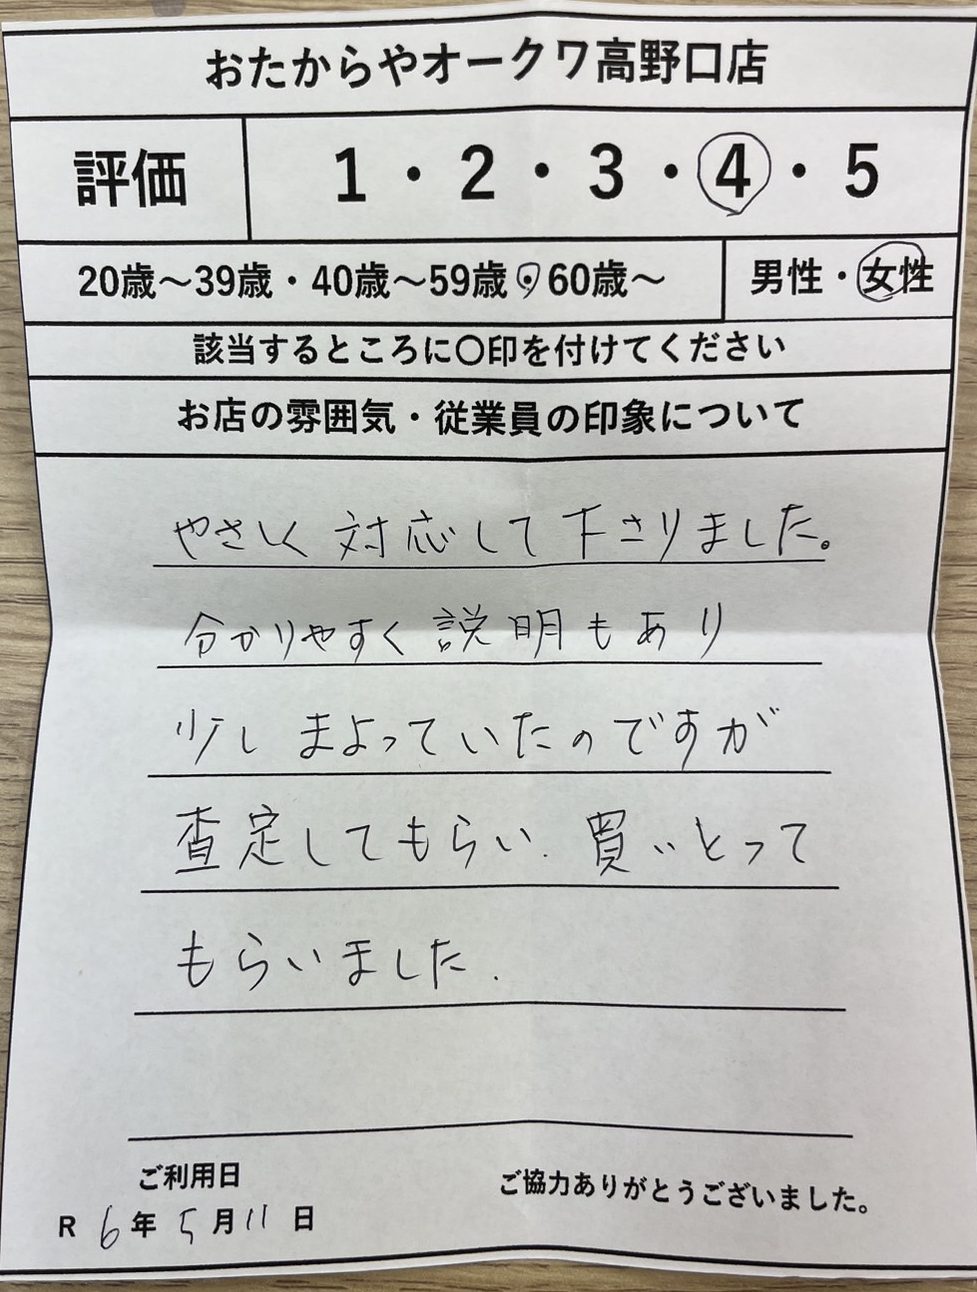 おたからやオークワ高野口店
評価 1・2・3・4・5
20歳～39歳・40歳～59歳・60歳～ 男性・女性
該当するところに〇印を付けてください
お店の雰囲気・従業員の印象について
やさしく対応して下さりました。
分かりやすく説明もあり
少しまよっていたのですが
査定してもらい.買いとって
もらいました.
ご利用日 ご協力ありがとうございました。
R 6年 5月11日